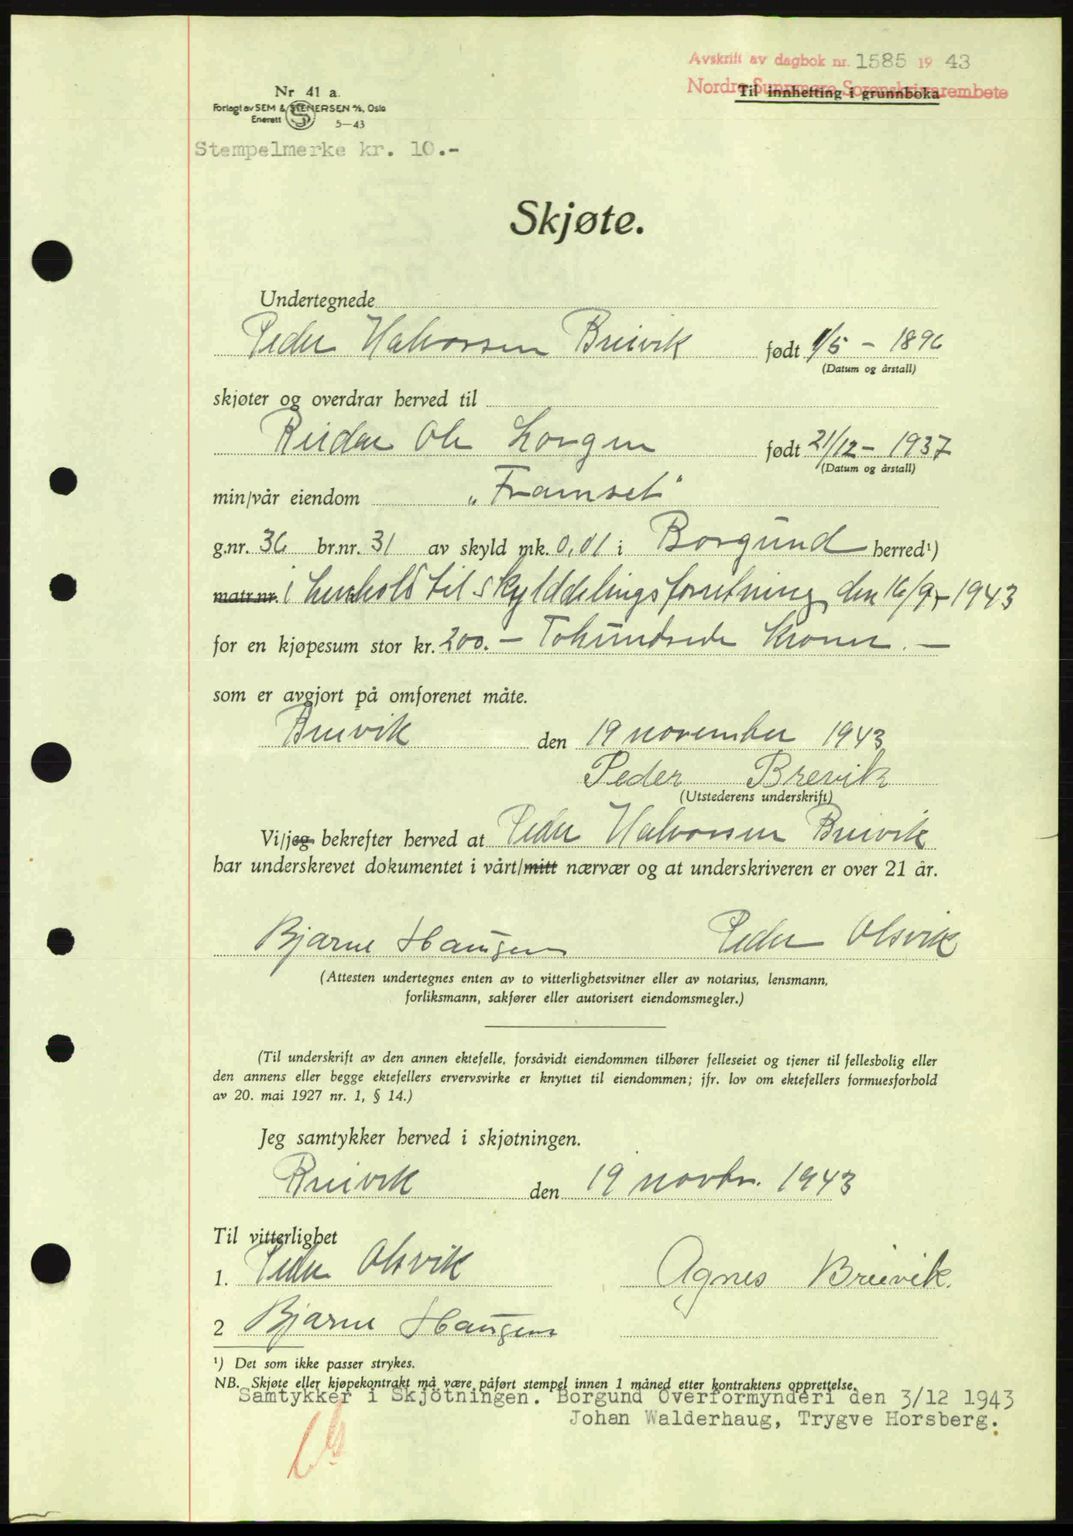 Avskrift av dagbok nr. 1585 1943
Nordre Sunnmøre Sorenskriverembete
Til innhefting i grunnboka
Nr 41 a.
Forlagt av SEM & STENERSEN A/S, Oslo
Enerett S 5-43
Stempelmerke kr. 10.-
Skjøte.
Undertegnede
Peder Halvorsen Breivik født 1/5 - 1896
(Datum og årstall)
skjøter og overdrar herved til
Reidar Ole Longva født 21/12 - 1937
(Datum og årstall)
min/vår eiendom "Framset"
g.nr. 36 br.nr. 31 av skyld mk. 0,01 i Borgund herred¹)
matr.nr. i henhold til skylddelingsforretning den 16/9 - 1943
for en kjøpesum stor kr. 200. - Tohundrede Kroner. -
som er avgjort på omforenet måte.
Breivik den 19 november 1943
Peder Breivik
(Utstederens underskrift)
Vi/jeg bekrefter herved at Peder Halvorsen Breivik
har underskrevet dokumentet i vårt/mitt nærvær og at underskriveren er over 21 år.
Bjarne Haugen Peder Olsvik
(Attesten undertegnes enten av to vitterlighetsvitner eller av notarius, lensmann,
forliksmann, sakfører eller autorisert eiendomsmegler.)
(Til underskrift av den annen ektefelle, forsåvidt eiendommen tilhører felleseiet og tjener til fellesbolig eller
den annens eller begge ektefellers ervervsvirke er knyttet til eiendommen; jfr. lov om ektefellers formuesforhold
av 20. mai 1927 nr. 1, § 14.)
Jeg samtykker herved i skjøtningen.
Breivik den 19 novbr. 1943
Til vitterlighet
1. Peder Olsvik Agnes Breivik.
2 Bjarne Haugen
¹) Det som ikke passer strykes.
NB. Skjøte eller kjøpekontrakt må være påført stempel innen 1 måned etter kontraktens opprettelse.
Samtykker i Skjötningen. Borgund Overformynderi den 3/12 1943
Johan Walderhaug, Trygve Horsberg.